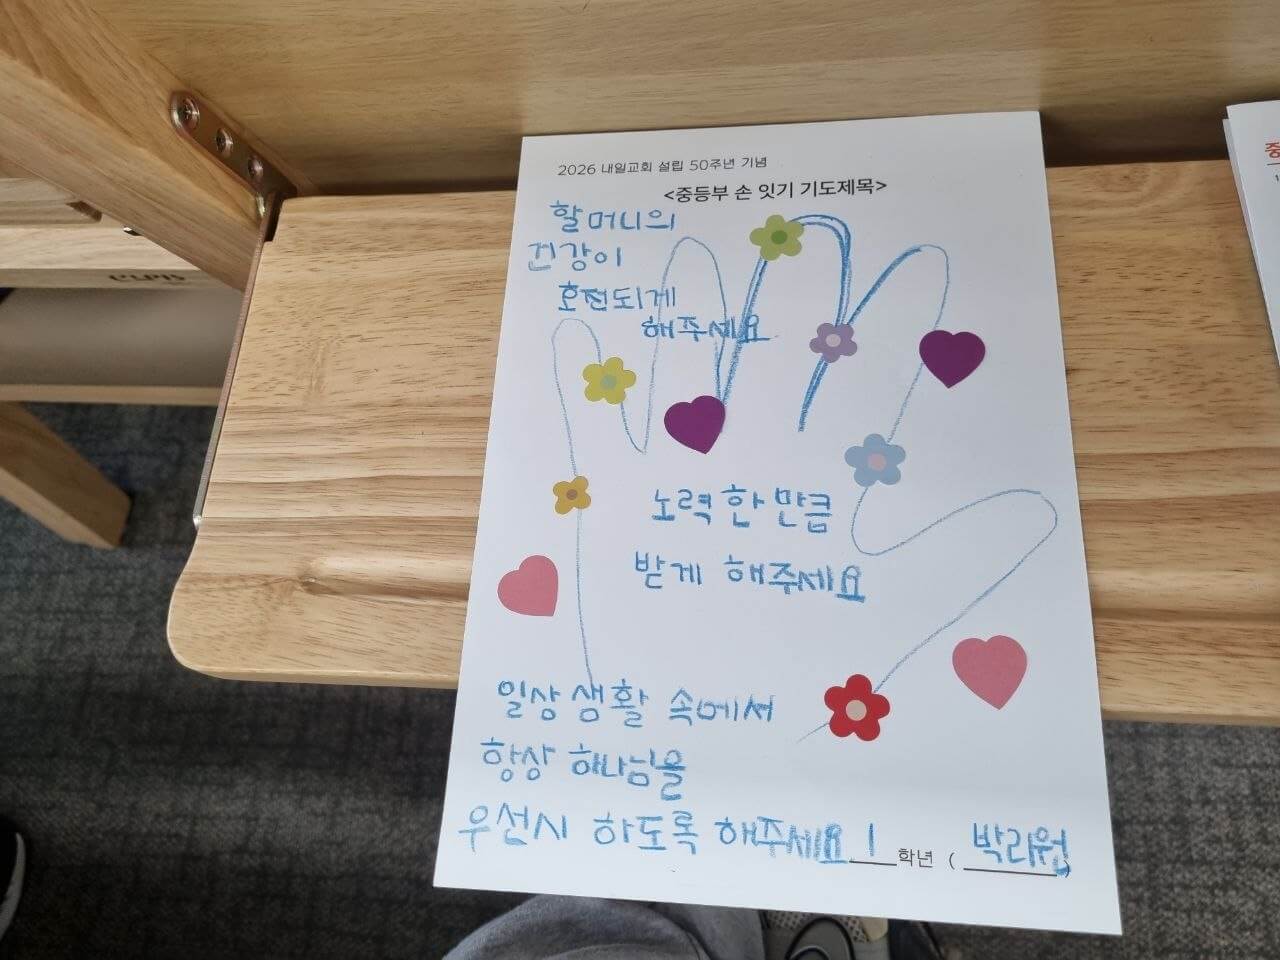 2026 내일교회 설립 50주년 기념
<중등부 손 잇기 기도제목>
할머니의
건강이
호전되게
해주세요
노력한 만큼
받게 해주세요
일상생활 속에서
항상 하나님을
우선시 하도록 해주세요
1학년 (박리원)
ELPIS
중